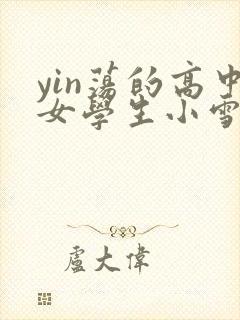 yin蕩的高中
女學生小雪
盧大偉